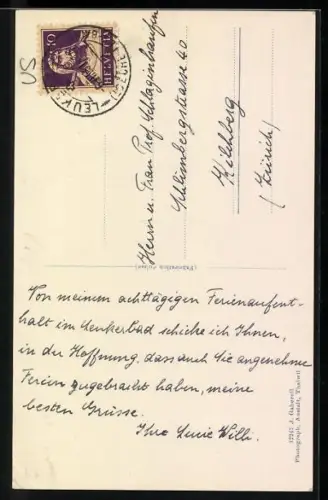 US
10
HELVETIA
LEUKERBAD
Herrn u. Frau Prof. Schlaginhaufen
Schlimbergstrasse 40
Kilchberg
(Zürich)
Von meinem achttägigen Ferienaufent-
halt in Leukerbad schicke ich Ihnen,
in der Hoffnung, dass auch Sie angenehme
Ferien zugebracht haben, meine
besten Grüsse.
Ihre Lucie Willi.
J. Gaberell
Photograph. Anstalt, Thalwil